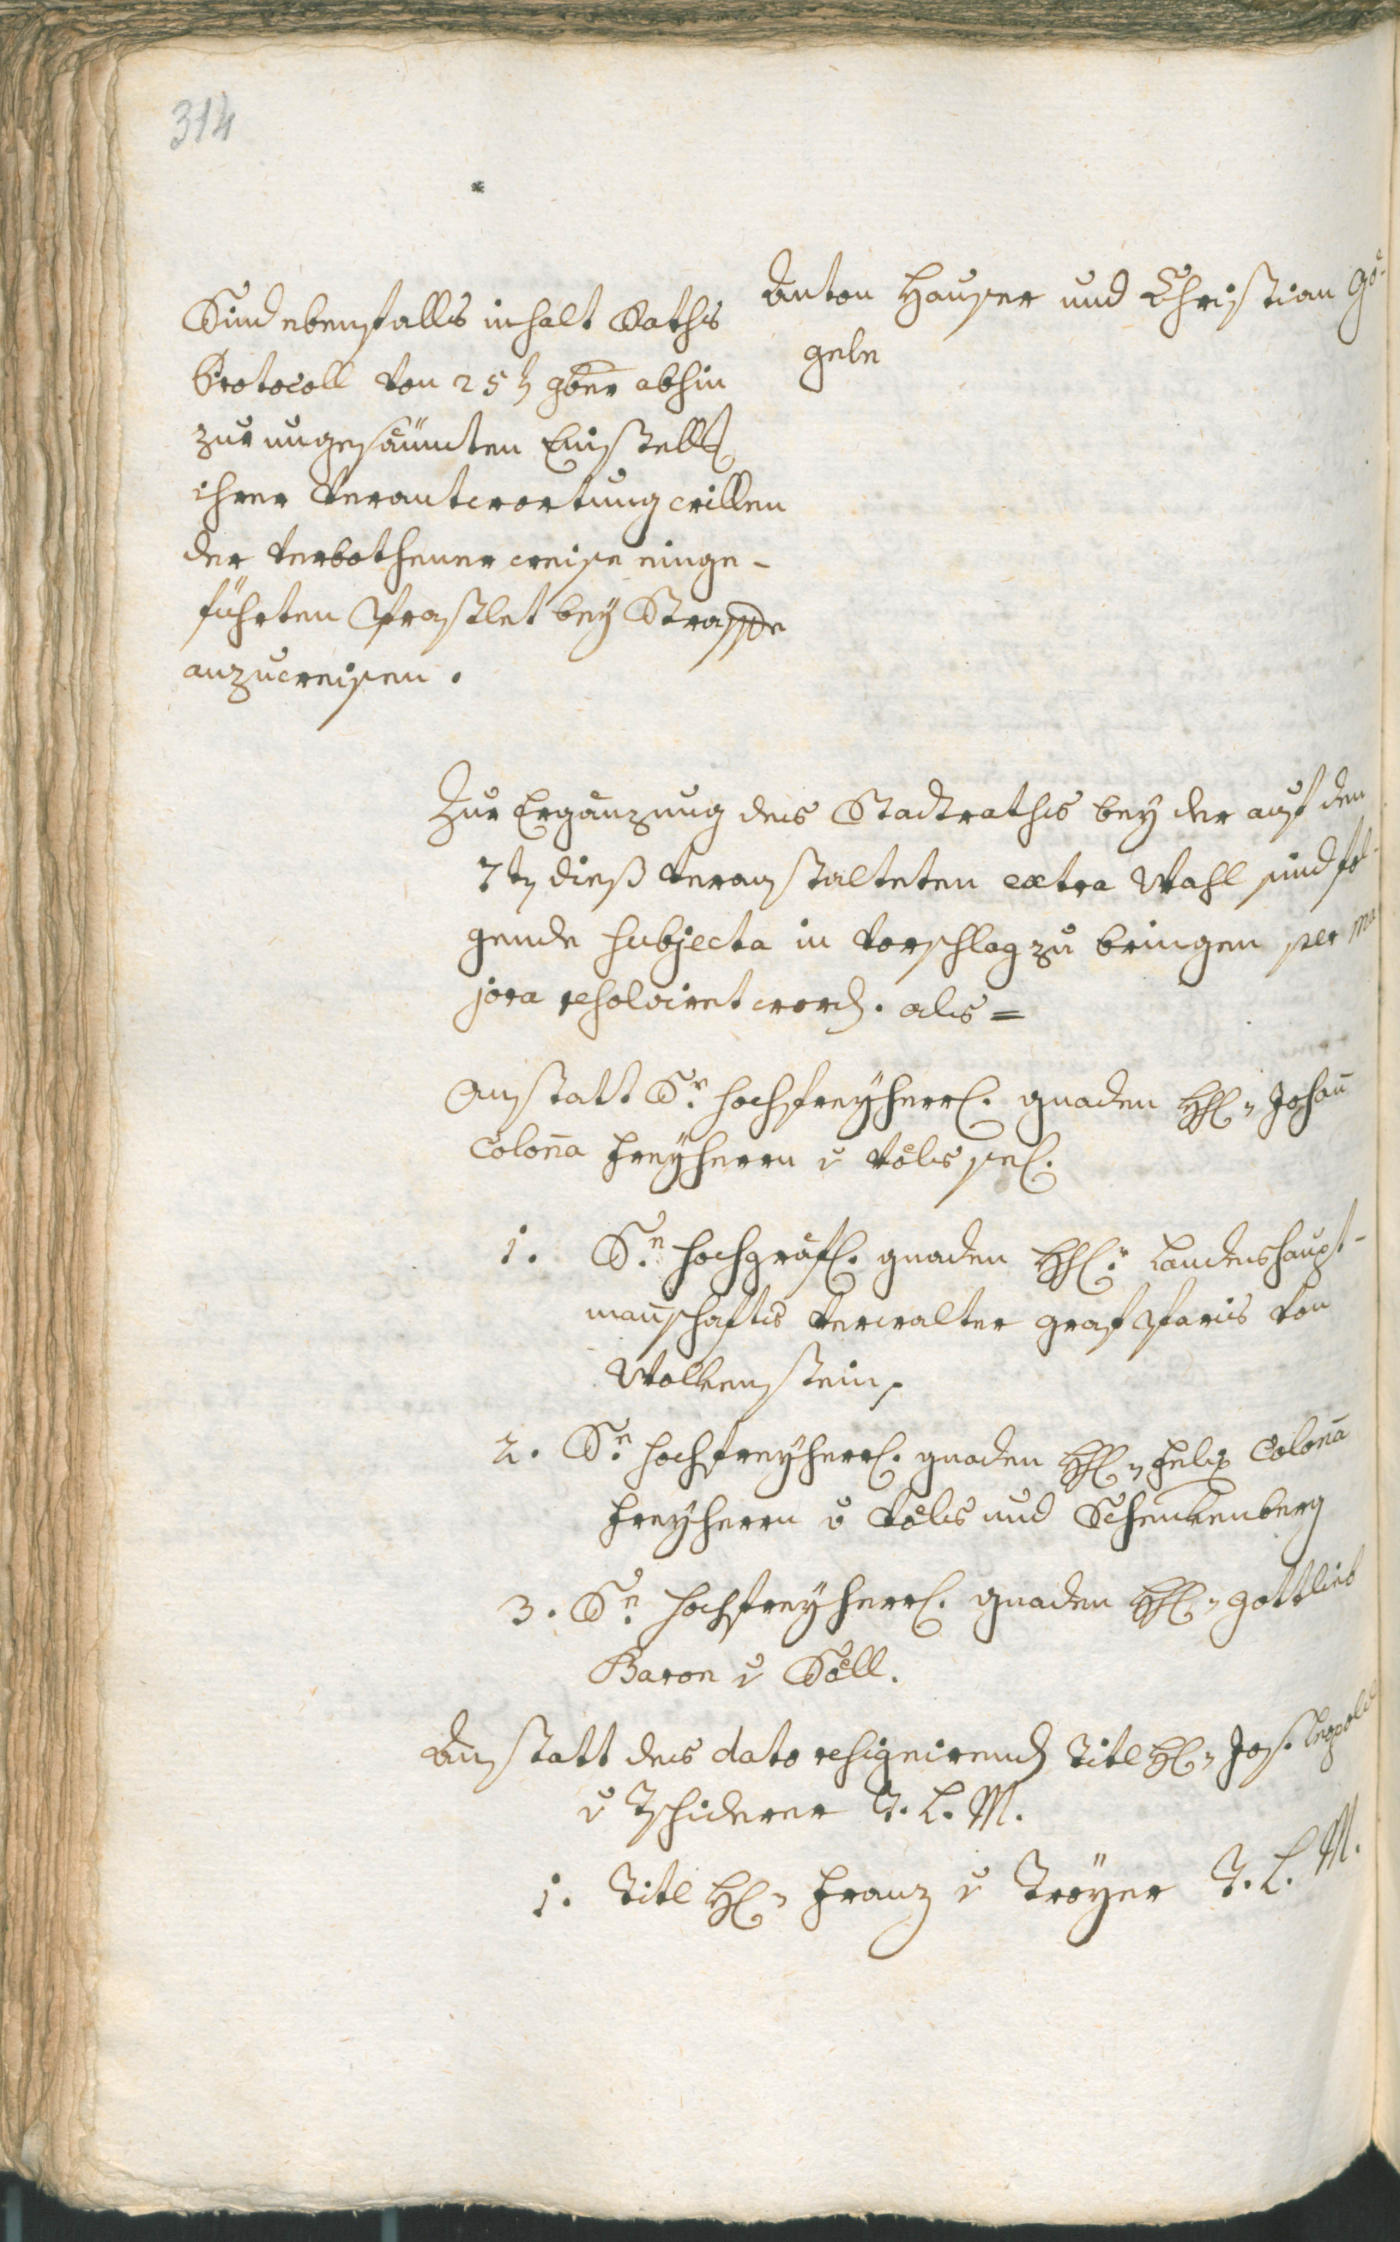 314
Sind ebenfalls inhalt Raths
Protocoll von 25ten 9ber abhin
zur ungesäumten Einstellg
ihrer Verantwortung willen
der verbothener weise einge-
führten Praßlet bey Straffe
anzuweisen.
Anton Hauser und Christian Gö-
gele
Zur Ergänzung des Stadtraths bey der auf den
7ten dieß veranstalteten extra Wahl sind fol-
gende subjecta in Vorschlag zu bringen per ma
jora resolviret word. als =
Anstatt Sr hochfreyherrl. gnaden HH. Johann
Colonna Freyherrn v Völs sel.
1. Sn hochgräfl. gnaden HH. Landeshaupt-
manschafts Verwalter graf Paris von
Wolkenstein.
2. Sn hochfreyherrl. gnaden HH. Felix Colonna
Freyherrn v Völs und Schenkenberg
3. Sn hochfreyherrl. gnaden HH. Gottlieb
Baron v Söll.
Anstatt des dato resignirend Titl H. Jos. Leopold
v Tschiderer T. L. M.
1. Titl H. Franz v Tröyer T. L. M.